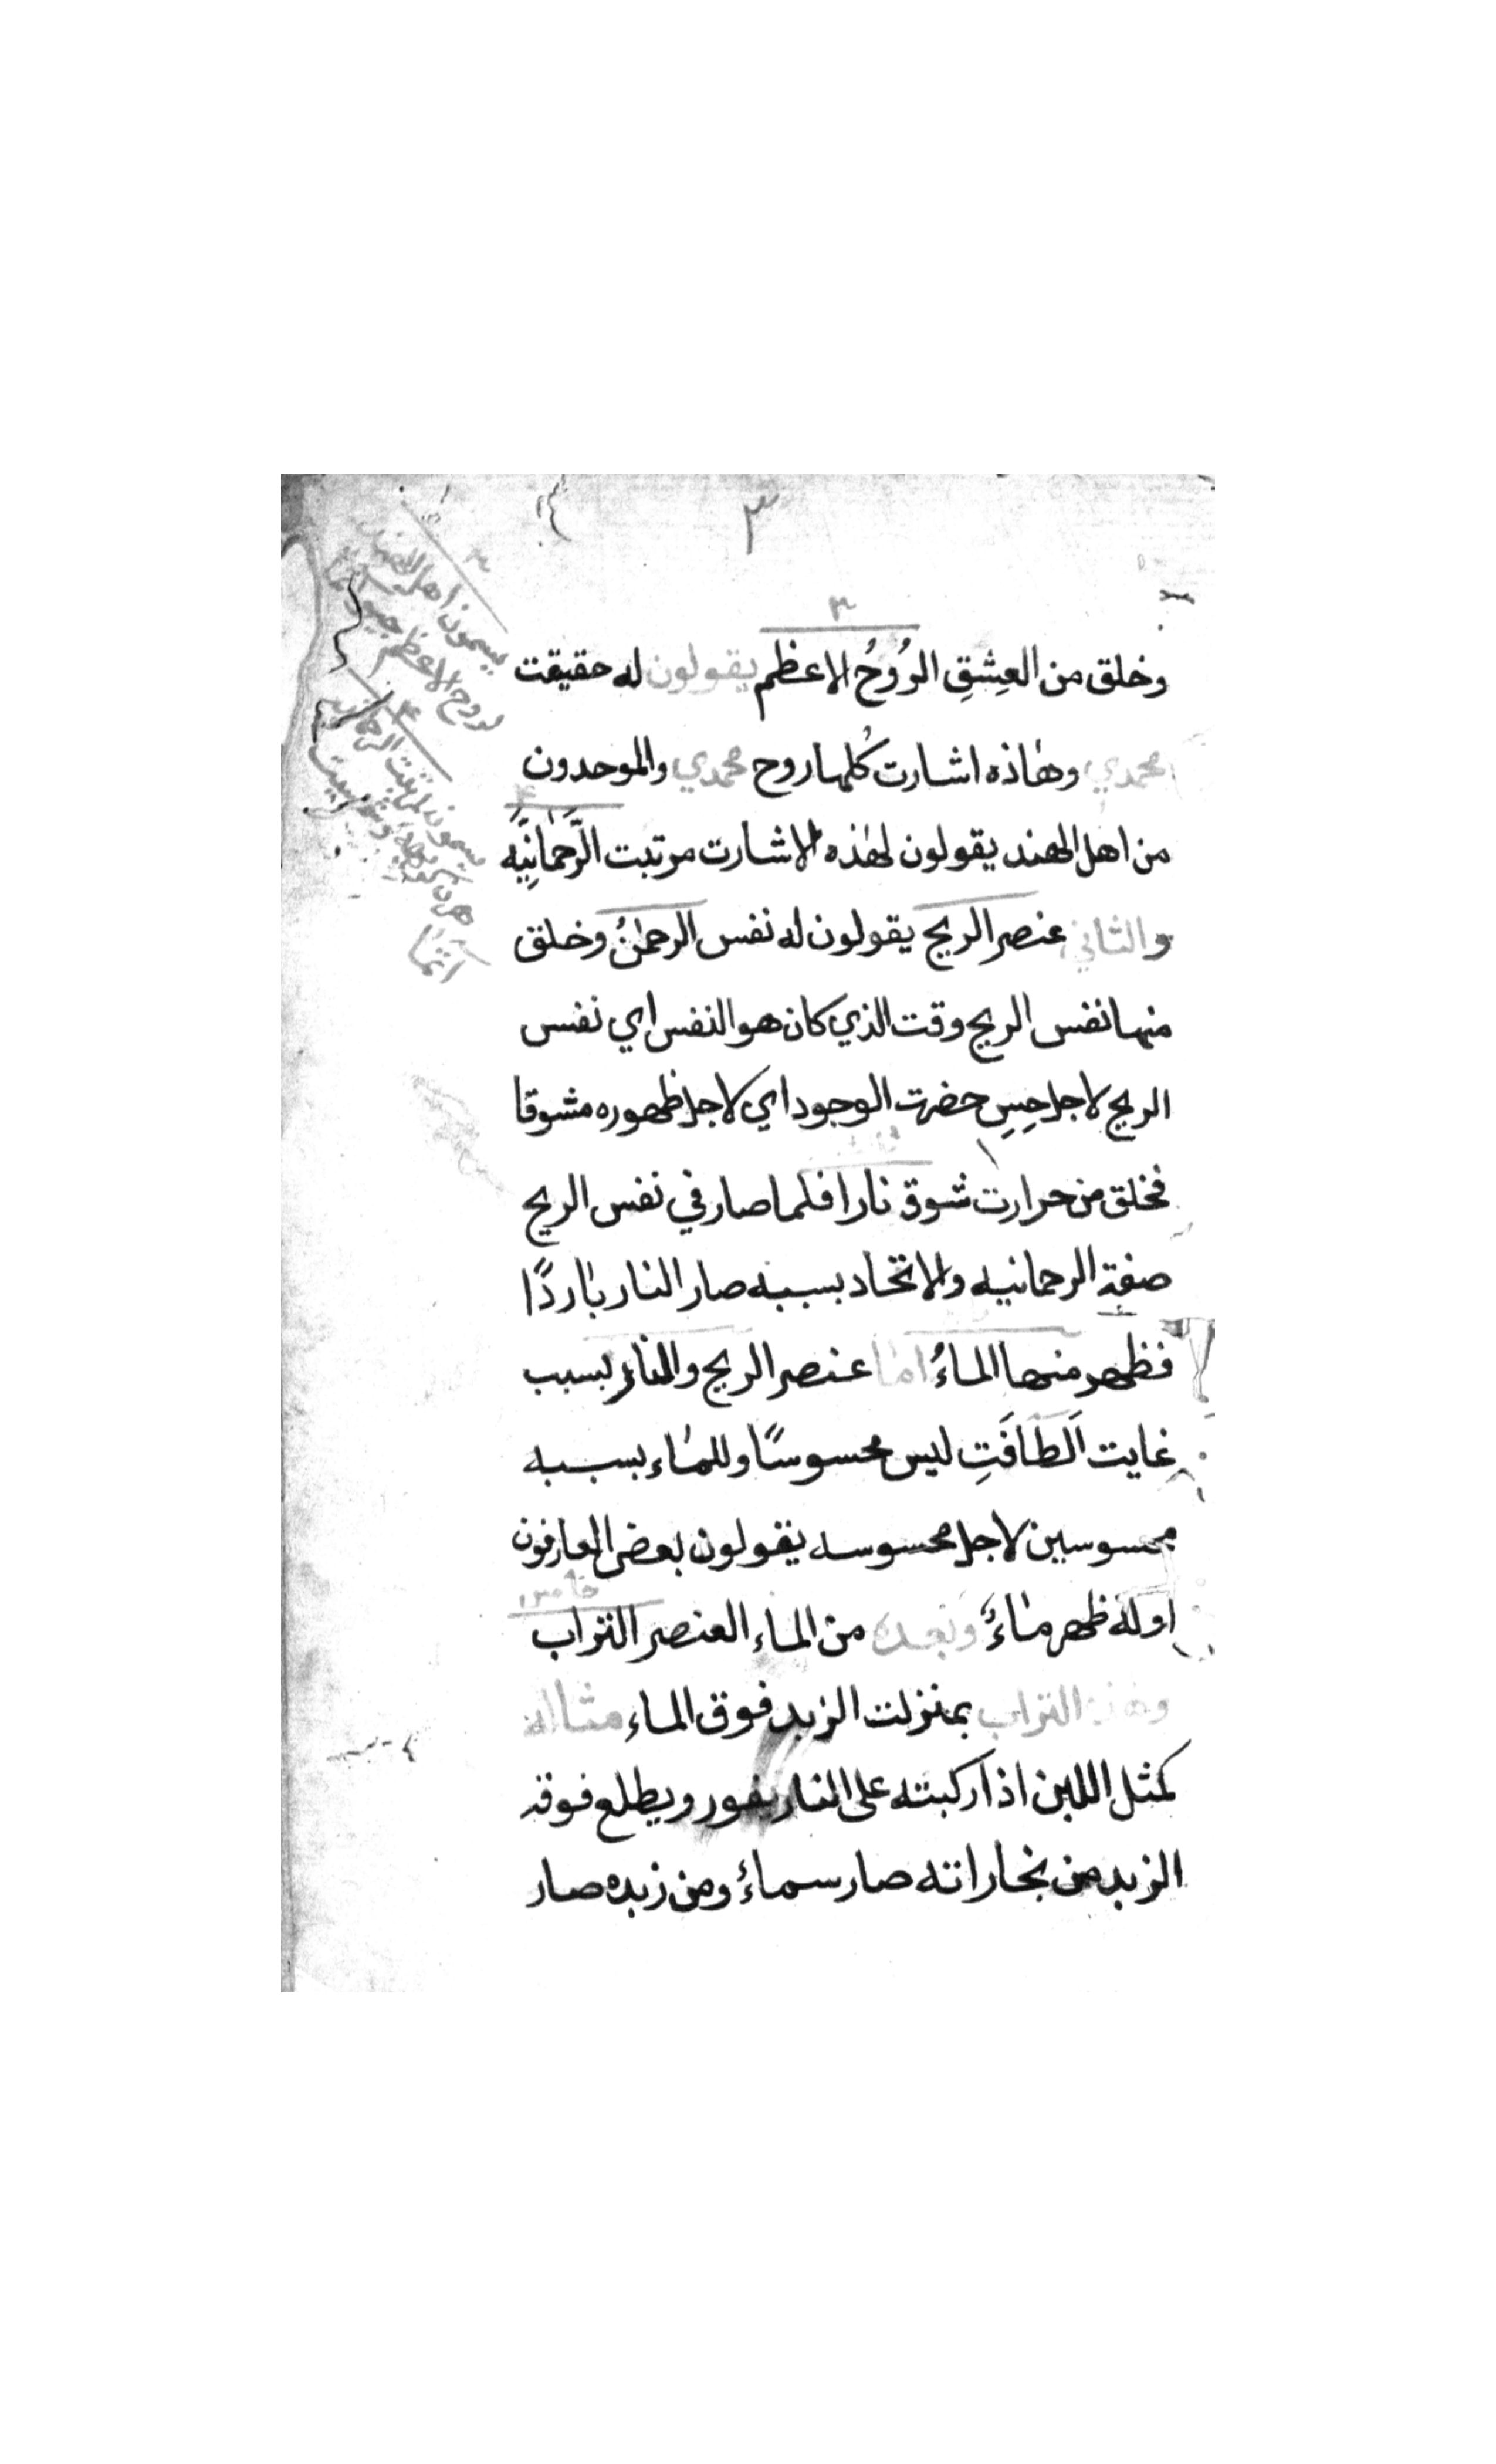 ٣
٣
وخلق من العِشِقِ الرُوُحُ الاعظم يقولون له حقيقت
محمدي وهٰاذه اشارت كُلها روح محمدي والموحدون
من اهل الهند يقولون لهٰذه الاشارت مرتبت الرَّحمَانِيَّه
والثاني عنصر الريح يقولون له نفس الرحمٰنُ وخلق
منها نفس الريح وقت الذي كان هو النفس اي نفس
الريح لاجل حِسِ حضرت الوجود اي لاجل ظهوره مشوقا
فخلق من حرارت شوق نارا فلما صار في نفس الريح
صفة الرحمانيه والاتحاد بسببه صار النار باردًا
فظهر منها الماءُ اما عنصر الريح والنار لبسبب
غايت اَلطافَتِ ليس محسوسًا وللماء بسببه
محسوسين لاجل محسوسه يقولون بعض العارفون
خامس
اوله ظهر ماءً وبعده من الماء العنصر التراب
وهذ التراب بمنزلت الزبد فوق الماءِ مثاله
كمثل اللبن اذا ركبته على النار يفور ويطلع فوقه
الزبد من بخاراته صار سماءً ومن زبده صار
يسمون اهل الهند
روح الاعظم